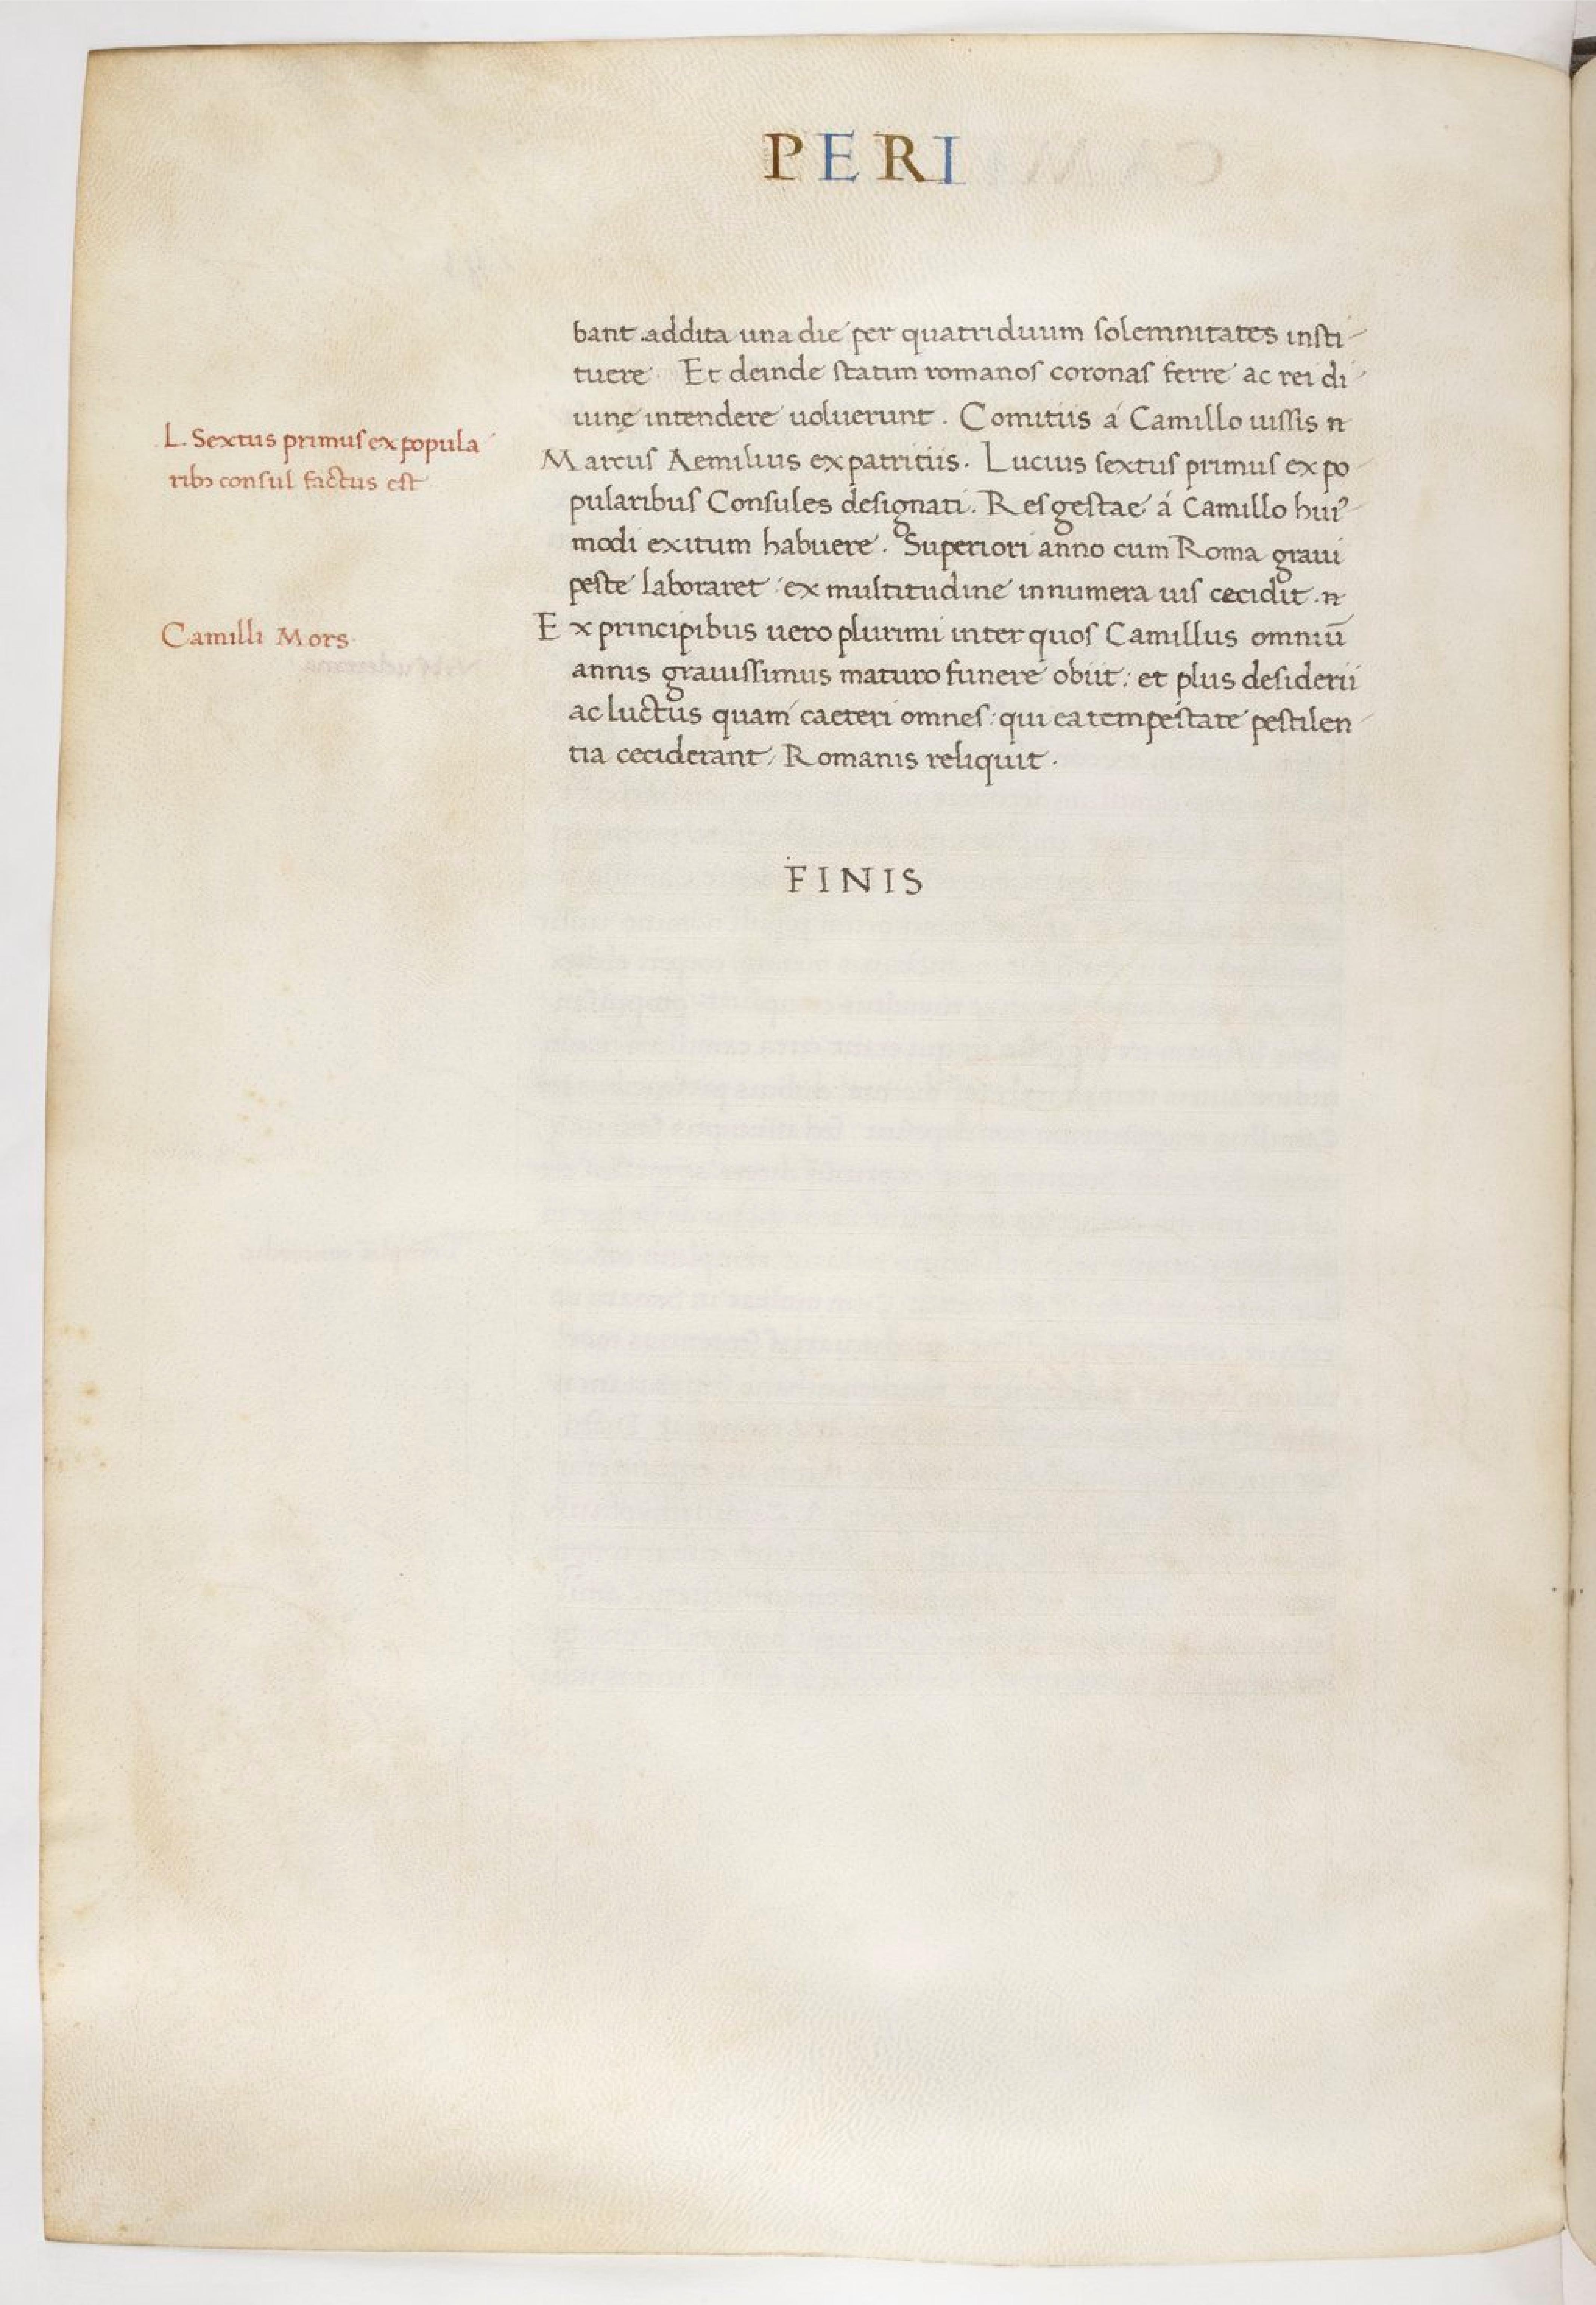 PERI
bant addita una die per quatriduum solemnitates insti-
tuere. Et deinde statim romanos coronas ferre ac rei di-
uinę intendere uoluerunt. Comitiis á Camillo iussis
L. Sextus primus ex popula-
ribꝫ consul factus est
Marcus Aemilius ex patritiis. Lucius sextus primus ex po-
pularibus Consules designati. Res gestae á Camillo huiꝰ-
modi exitum habuere. Superiori anno cum Roma graui
peste laboraret: ex multitudine innumera uis cecidit.
Camilli Mors
Ex principibus uero plurimi inter quos Camillus omniū
annis grauissimus maturo funere obiit: et plus desiderii
ac luctus quam caeteri omnes: qui ea tempestate pestilen-
tia ceciderant, Romanis reliquit.
FINIS